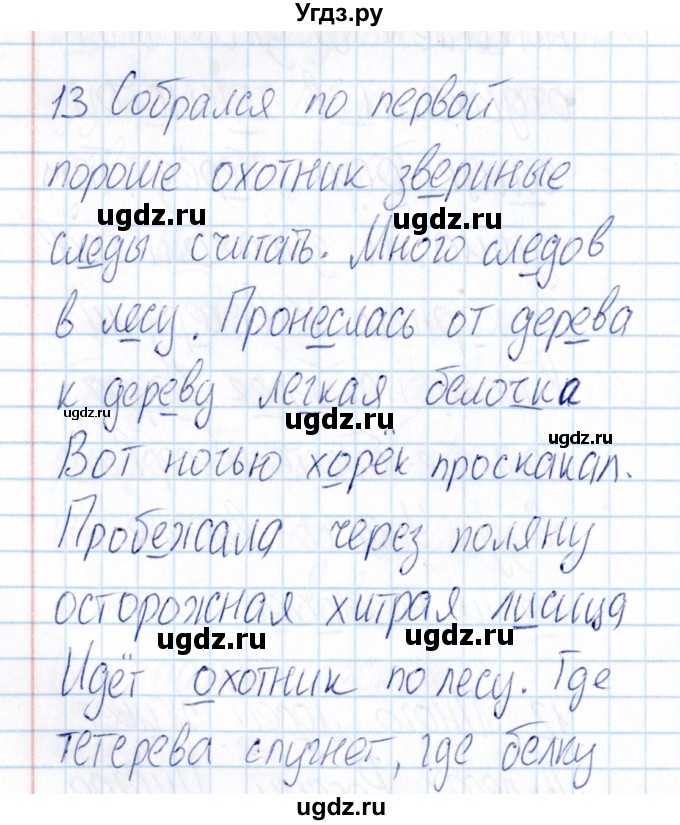 Угдз.ру
13 Собрался по первой
пороше охотник звериные
ugdz.ru ugdz.ru
следы считать. Много следов
в лесу. Пронеслась от дерева
к дереву легкая белочка
ugdz.ru ugdz.ru ugdz.ru
Вот ночью хорёк проскакал.
Пробежала через поляну
осторожная хитрая лисица
ugdz.ru ugdz.ru
Идёт охотник по лесу. Где
тетерева спугнет, где белку
ugdz.ru